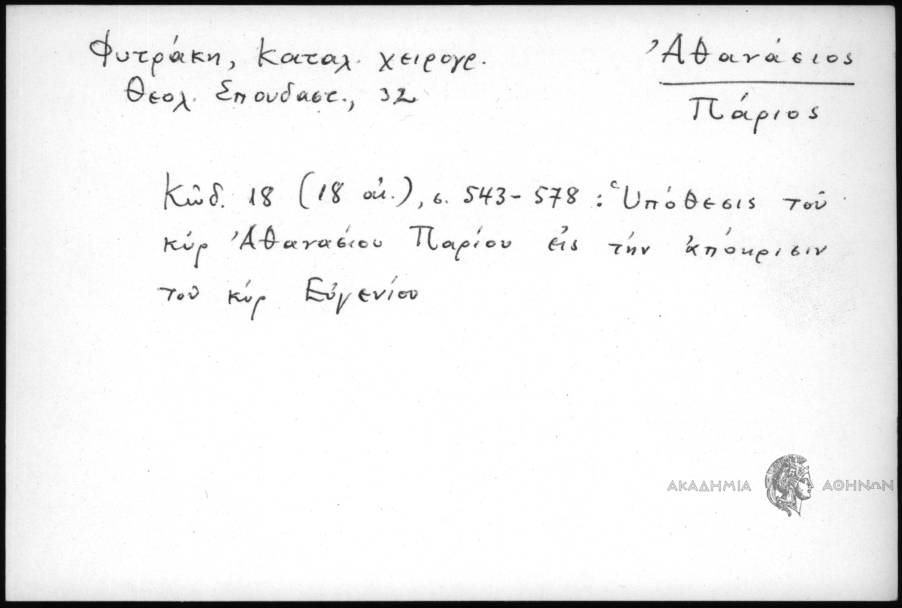 Φυτράκη, Καταλ. χειρογρ.
Θεολ. Σπουδαστ., 32
Ἀθανάσιος
Πάριος
Κῶδ. 18 (18 αἰ.), σ. 543-578 : Ὑπόθεσις τοῦ
κύρ Ἀθανασίου Παρίου εἰς τήν ἀπόκρισιν
τοῦ κύρ Εὐγενίου
ΑΚΑΔΗΜΙΑ ΑΘΗΝΩΝ